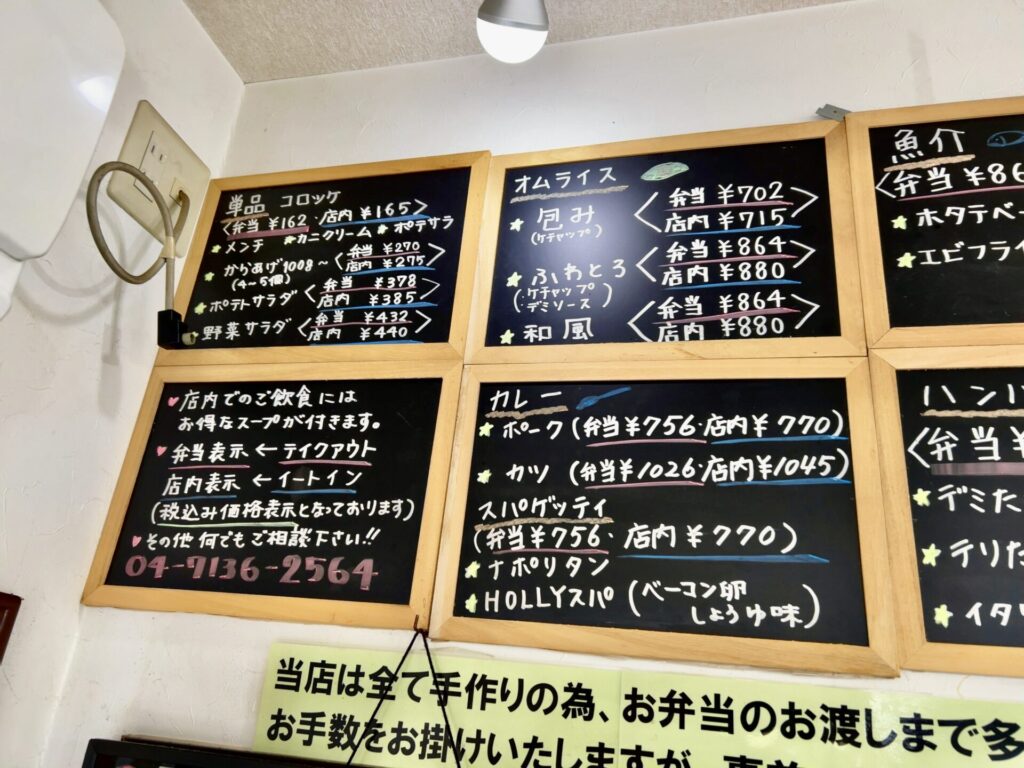 単品 コロッケ
〈弁当 ¥162・店内 ¥165〉
★メンチ ★カニクリーム ★ポテサラ
★からあげ100g～〈弁当 ¥270
(4～5個) 店内 ¥275〉
★ポテトサラダ〈弁当 ¥378
店内 ¥385〉
★野菜サラダ〈弁当 ¥432
店内 ¥440〉
オムライス
★包み〈弁当 ¥702
(ケチャップ) 店内 ¥715〉
★ふわとろ〈弁当 ¥864
(ケチャップ 店内 ¥880〉
デミソース)
★和風〈弁当 ¥864
店内 ¥880〉
魚介
〈弁当 ¥86
★ホタテベ
★エビフライ
♥店内でのご飲食には
お得なスープが付きます。
♥弁当表示←テイクアウト
店内表示←イートイン
(税込み価格表示となっております)
♥その他何でもご相談下さい!!
04-7136-2564
カレー
★ポーク(弁当¥756・店内¥770)
★カツ(弁当¥1026・店内¥1045)
スパゲッティ
(弁当¥756・店内¥770)
★ナポリタン
★HOLLYスパ(ベーコン卵
しょうゆ味)
ハン
〈弁当¥
★デミた
★テリた
★イタ
当店は全て手作りの為、お弁当のお渡しまで多
お手数をお掛けいたしますが、